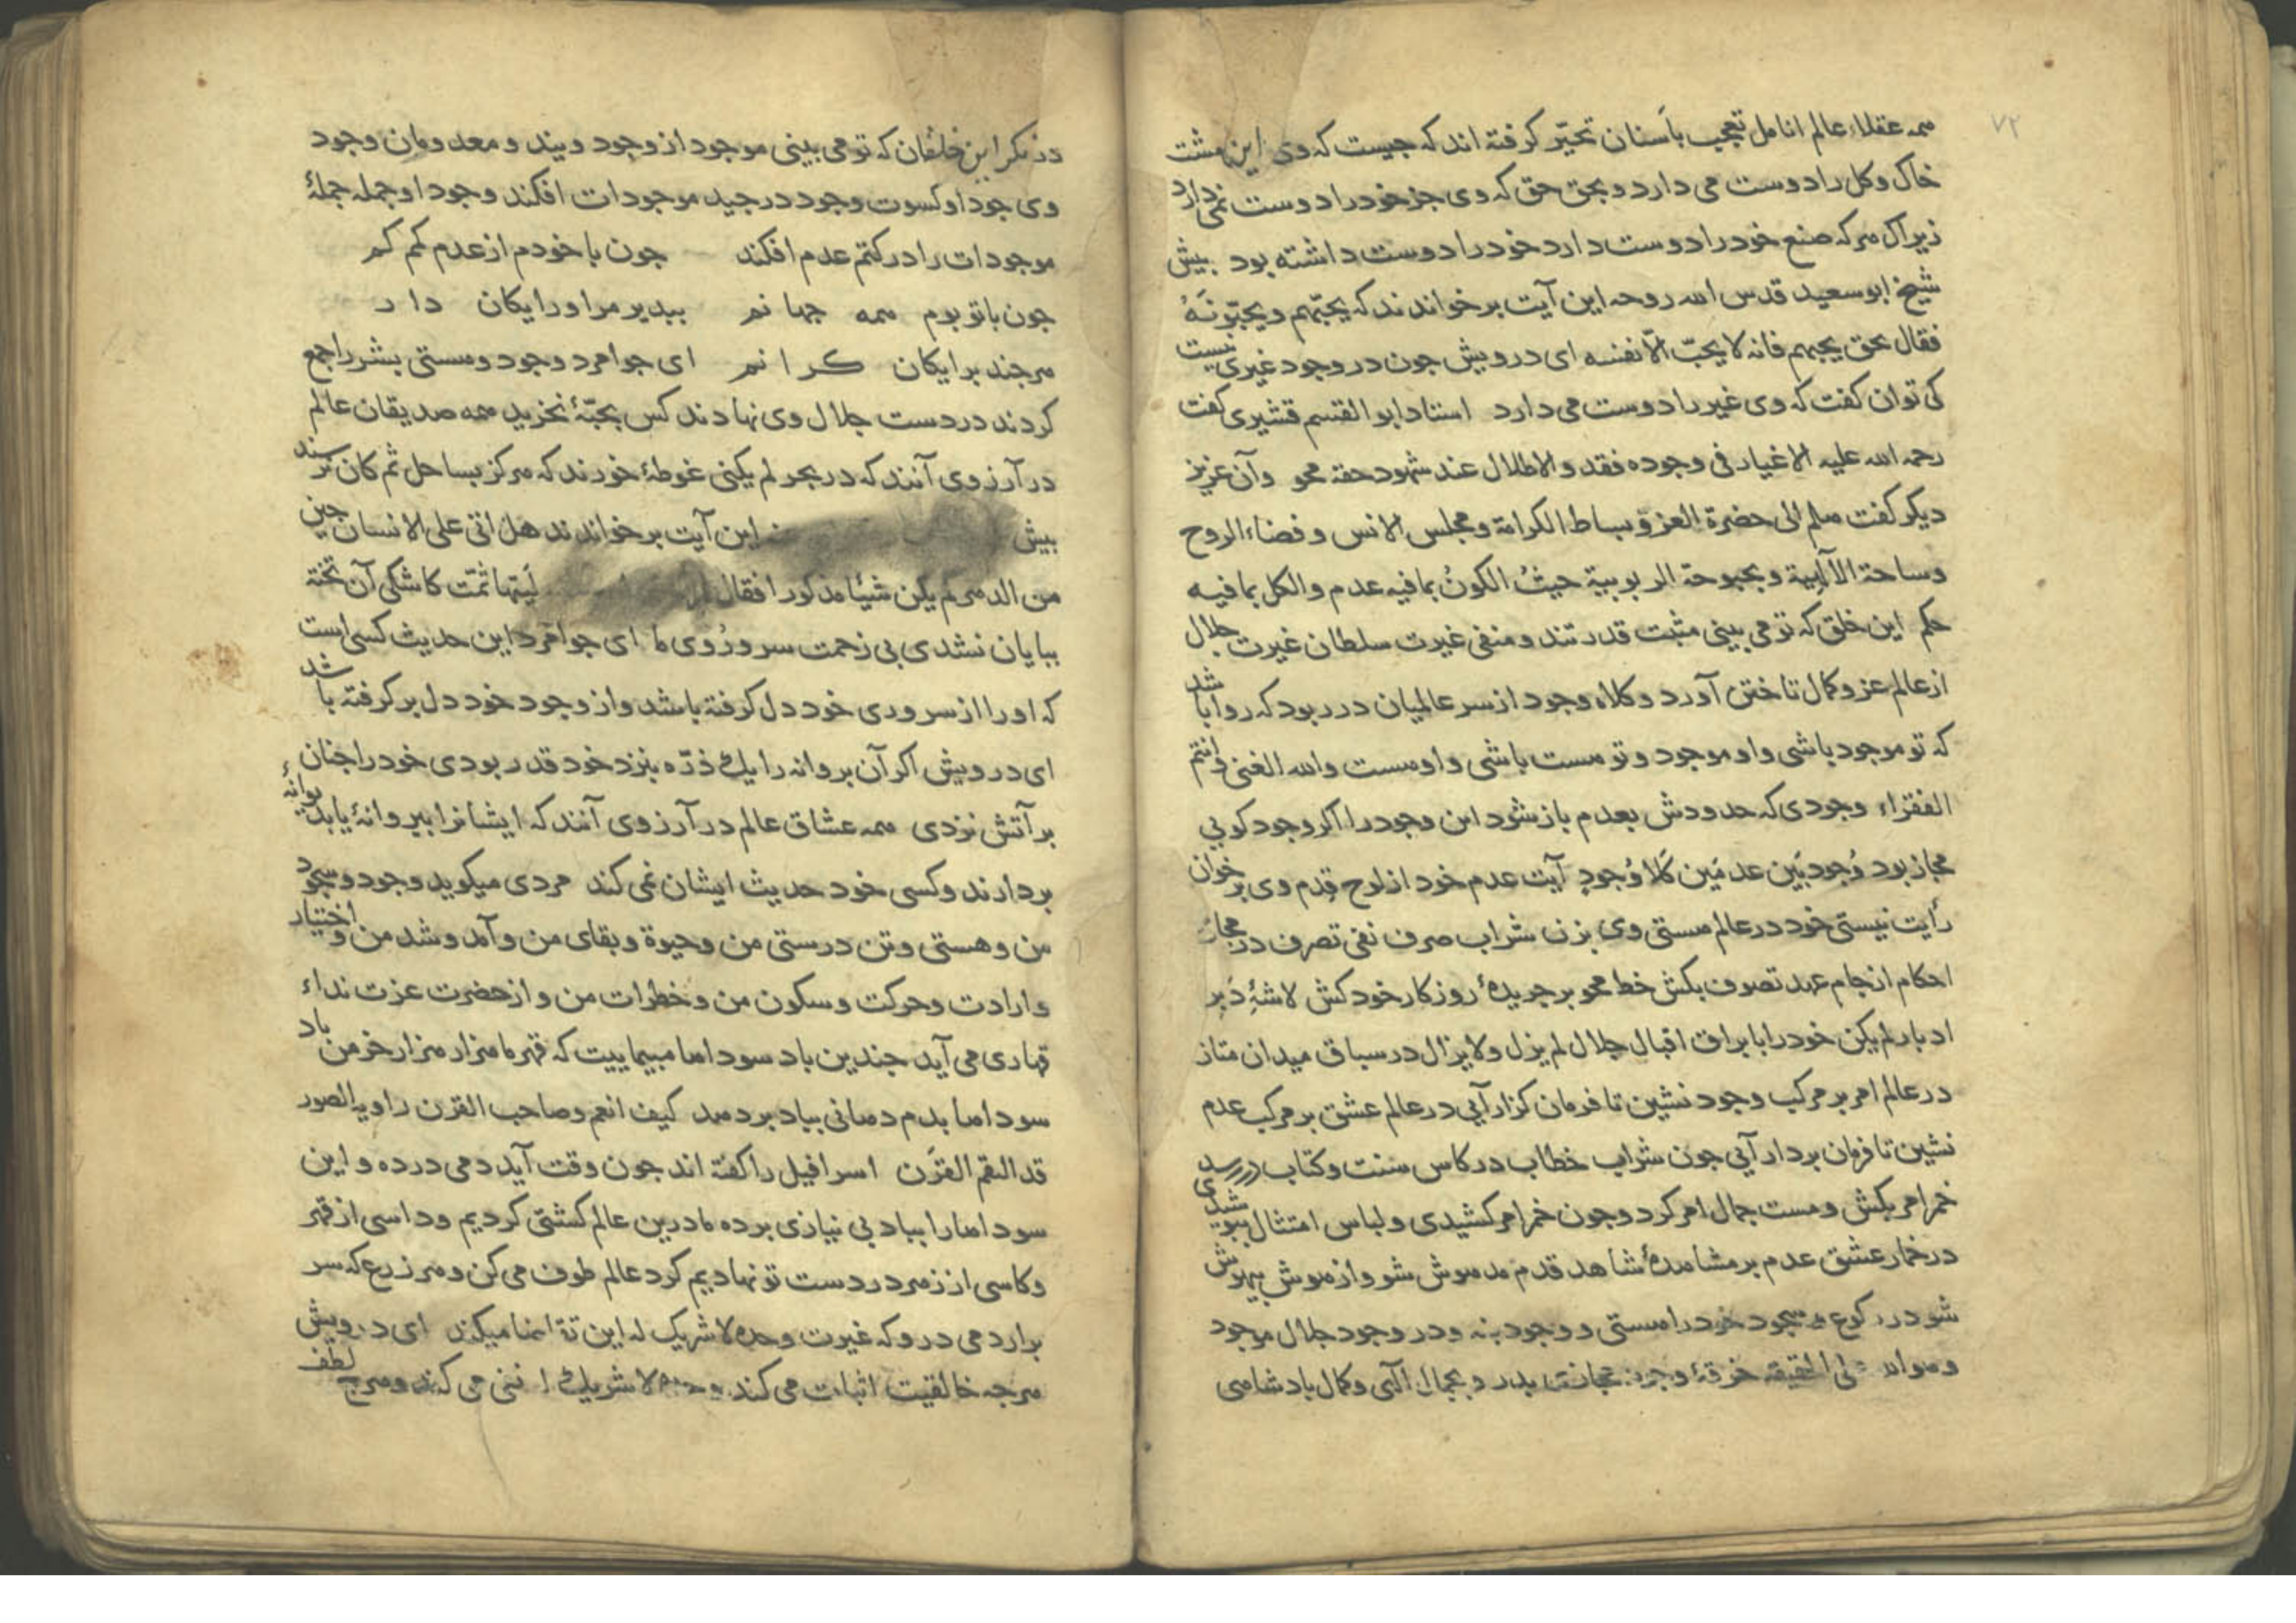 ۷۲
همه عقلاء عالم انامل تعجب باَسنان تحیّر کرفته اند که جیست که وی این مشت
خاک وکل را دوست می دارد و بحق حق که وی جز خود را دوست نمی دارد
زیراک هرکه صنع خود را دوست دارد خود را دوست داشته بود بیش
شیخ ابوسعید قدس الله روحه این آیت برخواندند که یحبّهم ویحبّونَهُ
فقال بحق یحبهم فانه لا یحبّ الّا نفسه ای درویش جون در وجود غیری نیست
کی توان کفت که وی غیر را دوست می دارد استاد ابوالقسم قشیری کفت
رحمه الله علیه الاغیار فی وجوده فقد والاطلال عند شهود حقه محو وآن عزیز
دیکر کفت هلم الی حضرة العزة وبساط الکرامة ومجلس الانس وفضاء الروح
وساحة الآلهیة وبحبوحة الربوبیة حیثُ الکونُ بما فیه عدم والکل بما فیه
حکم این خلق که تو می بینی مثبت قدرتند ومنفی غیرت سلطان غیرت جلال
از عالم عز وکمال تاختن آورد وکلاه وجود از سر عالمیان در ربود که روا باشد
که تو موجود باشی واو موجود وتو هست باشی واو هست والله الغنی وانتم
الفقراء وجودی که حدودش بعدم باز شود این وجود را اکر وجود کویی
مجاز بود وُجود بَین عدمَین کَلا وُجودٍ آیت عدم خود از لوح قِدم وی برخوان
رأیت نیستی خود در عالم هستی وی بزن شراب صرف نفی تصرف در مجار
احکام از جام عهد تصوف بکش خط محو بر جریدهٔ روزکار خود کش لاشهٔ دَبر
ادبار لم یکن خود را با براق اقبال جلال لم یزل ولا یزال در سباق میدان متاز
در عالم امر بر مرکب وجود نشین تا فرمان کزار آیی در عالم عشق بر مرکب عدم
نشین تا فرمان بردار آیی جون شراب خطاب در کاس سنت وکتاب دررسد
خمر امر بکش ومست جمال امر کرد وجون خمر امر کشیدی ولباس امتثال بپوشیدی
در خمار عشق عدم بر مشاهدهٔ شاهد قدم مدهوش شو واز هوش بیهوش
شو در رکوع وسجود خود را هستی ووجود بنه ودر وجود جلال موجود
وهو الله علی الحقیقه خرقهٔ وجود مجازی بدر وبجمال آلهی وکمال بادشاهی
درنکر این خلقان که تو می بینی موجود از وجود ویند ومعدومان وجود
وی جود او کسوت وجود در جید موجودات افکند وجود او جمله جملهٔ
موجودات را در کتم عدم افکند جون با خودم از عدم کم کم
جون با تو بوم همه جهانم ببدیر مرا و رایکان دار
هرجند برایکان کرانم ای جوامرد وجود وهستی بشر را جمع
کردند در دست جلال وی نهادند کس بحبّهٔ نخرید همه صدیقان عالم
در آرزوی آنند که در بحر لم یکنی غوطهٔ خورند که هرکز بساحل ثم کان نرسند
بیش این آیت برخواندند هل اتی علی الانسان حین
من الدهر لم یکن شیئا مذکورا فقال لَیتَها تمّت کاشکی آن تخته
ببایان نشدی بی زحمت سر ورُوی ما ای جوامرد این حدیث کسی است
که او را از سر وری خود دل کرفته باشد واز وجود خود دل برکرفته باشد
ای درویش اکر آن بروانه را یک ذرّه بنزد خود قدر بودی خود را جنان
بر آتش نزدی همه عشاق عالم در آرزوی آنند که ایشانرا ببروانهٔ یا بدیوانهٔ
بردارند وکسی خود حدیث ایشان نمی کند مردی میکوید وجود وسجود
من وهستی وتن درستی من وحیوة وبقای من وآمد وشد من واختیار
وارادت وحرکت وسکون من وخطرات من واز حضرت عزت نداء
قهاری می آید جندین باد سوداها مبیمایت که قهر ما هزار هزار خرمن باد
سوداها بدم دمانی بباد بردهد کیف انعم وصاحب القرن راویه الصور
قد التقم القرَن اسرافیل را کفته اند جون وقت آید دمی درده واین
سوداها را بباد بی نیازی برده ما درین عالم کشتی کردیم وداسی از قهر
وکاسی از زهر در دست تو نهادیم کرد عالم طوف می کن وهر زرع که سر
برارد می درو که غیرت وحده لا شریک له این تقاضا میکند ای درویش
هرجه خالقیت اثبات می کند وحده لا شریک له نفی می کند وهرج لطف